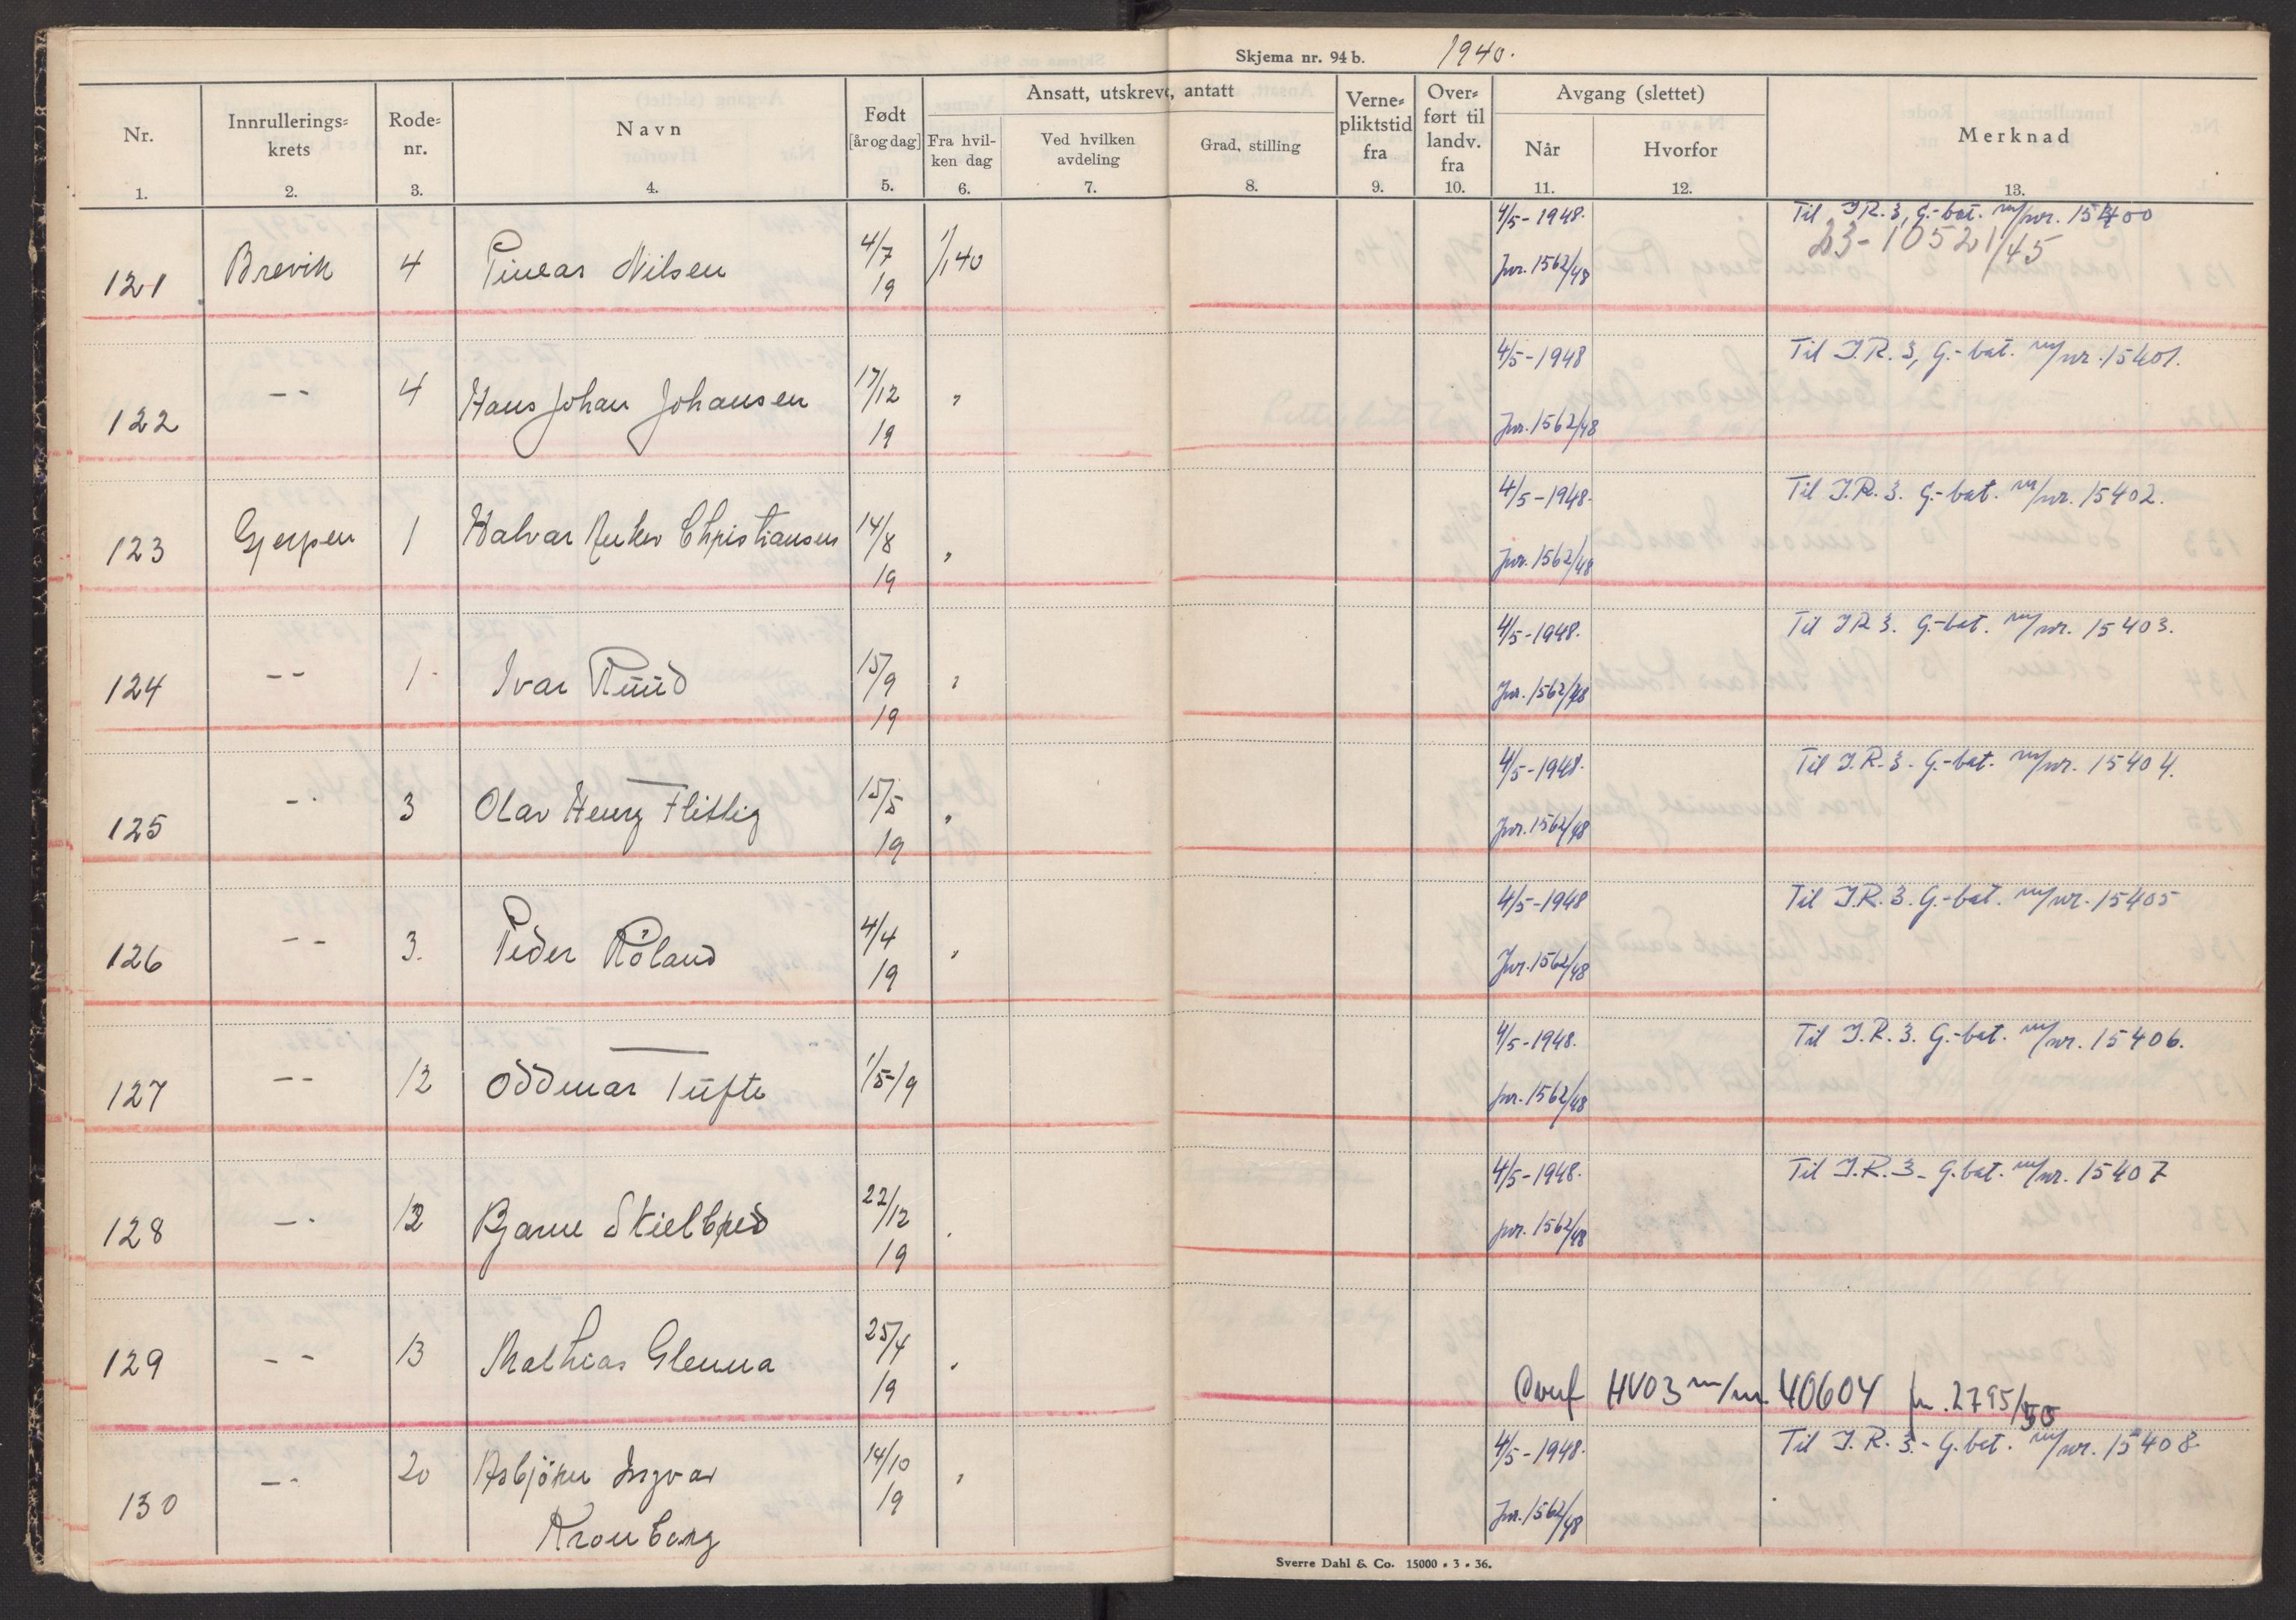 Skjema nr. 94 b. 1940.
Nr. Innrullerings= krets Rode= nr. Navn Født [år og dag] Ansatt, utskreve, antatt Verne= pliktstid fra Over= ført til landv. fra Avgang (slettet) Merknad
Fra hvil- ken dag Ved hvilken avdeling Grad, stilling Når Hvorfor
1. 2. 3. 4. 5. 6. 7. 8. 9. 10. 11. 12. 13.
4/5-1948. Til I.R. 3, G.-bat. m/nr. 15400
23-10521/45
121 Brevik 4 Pineas Nilsen 4/7 19 1/1 40 Jnr. 1562/48
4/5-1948 Til I.R. 3, G.-bat. m/nr. 15401.
122 -- 4 Hans Johan Johansen 17/12 19 " Jnr. 1562/48
4/5-1948. Til I.R. 3. G.-bat. m/nr. 15402.
123 Gjerpen 1 Halvar Christiansen 14/8 19 " Jnr. 1562/48
4/5-1948. Til I R 3. G.-bat. m/nr. 15403.
124 -- 1 Ivar Ruud 15/9 19 " Jnr. 1562/48
4/5-1948. Til I.R. 3. G.-bat. m/nr. 15404.
125 -- 3 Olav Henry Flittig 15/5 19 " Jnr. 1562/48
4/5-1948 Til I.R. 3. G.-bat. m/nr. 15405
126 -- 3. Peder Röland 4/4 19 " Jnr. 1562/48
4/5-1948. Til I.R. 3. G.-bat. m/nr. 15406.
127 -- 12 Oddmar Tufte 1/5-19 Jnr. 1562/48
4/5-1948. Til I.R. 3- G.bat. m/nr. 15407
128 -- 12 Bjarne Skielbred 22/12 19 " Jnr. 1562/48
129 -- 13 Mathias Glenna 25/4 19 "
Overf HV03 m/nr 40604 jnr. 2795/50
4/5-1948. Til I.R. 3.- G.bat. m/nr. 15408.
130 -- 20 Asbjörn Ingvar 14/10 19 " Jnr. 1562/48
Kronborg
Sverre Dahl & Co. 15000 . 3 . 36.